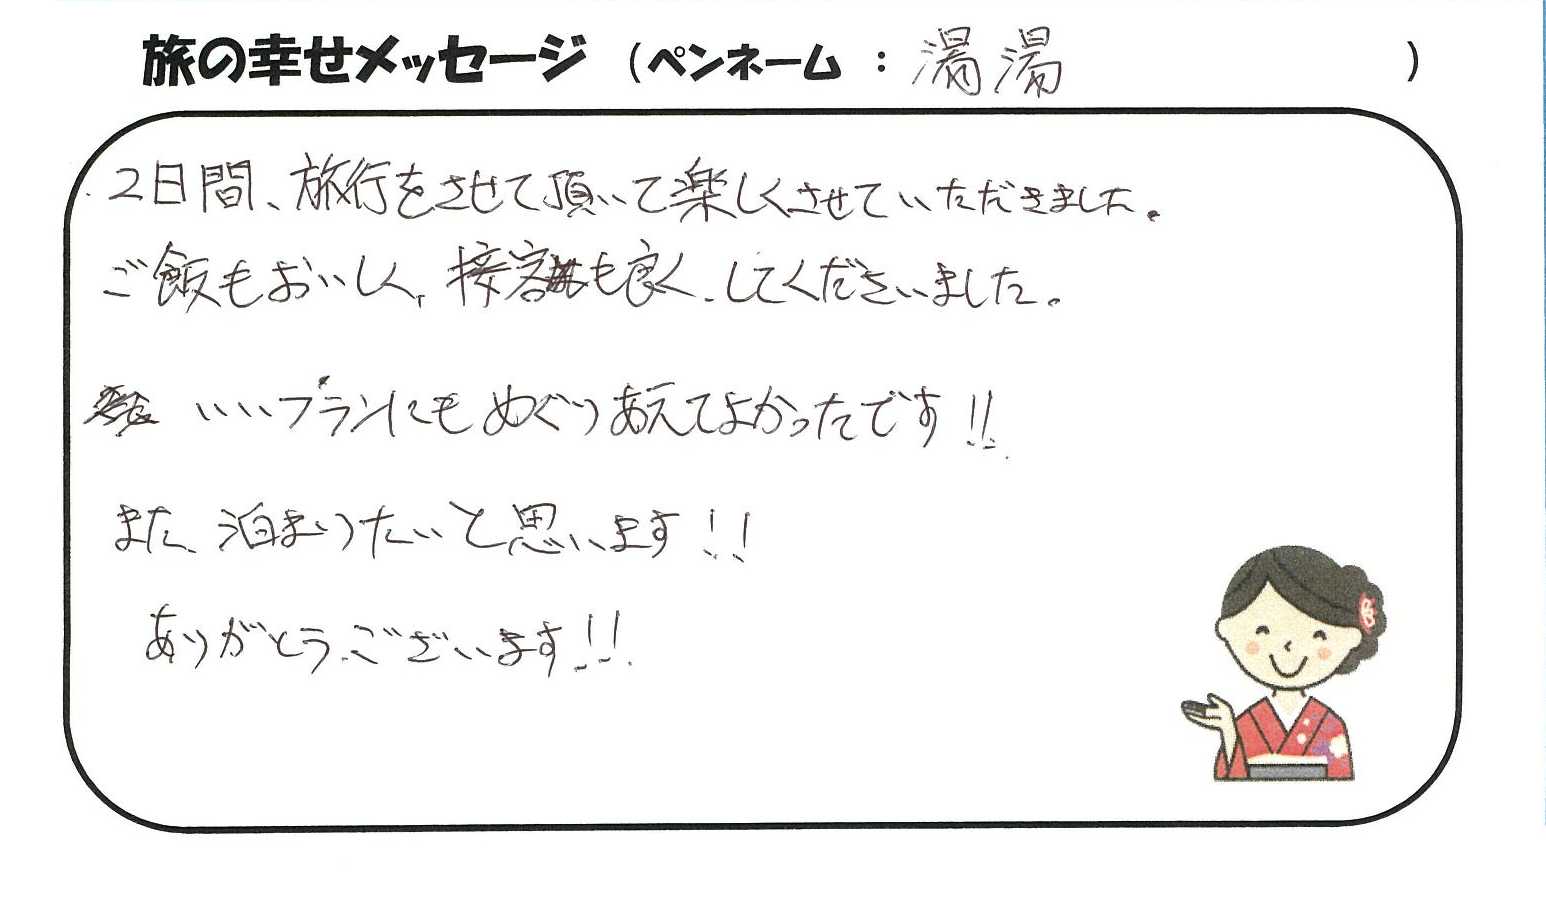 旅の幸せメッセージ (ペンネーム : 湯湯 )
2日間、旅行をさせて頂いて楽しくさせていただきました。
ご飯もおいしく、接客も良く、してくださいました。
いいプランにもめぐりあえてよかったです!!
また、泊まりたいと思います!!
ありがとうございます!!